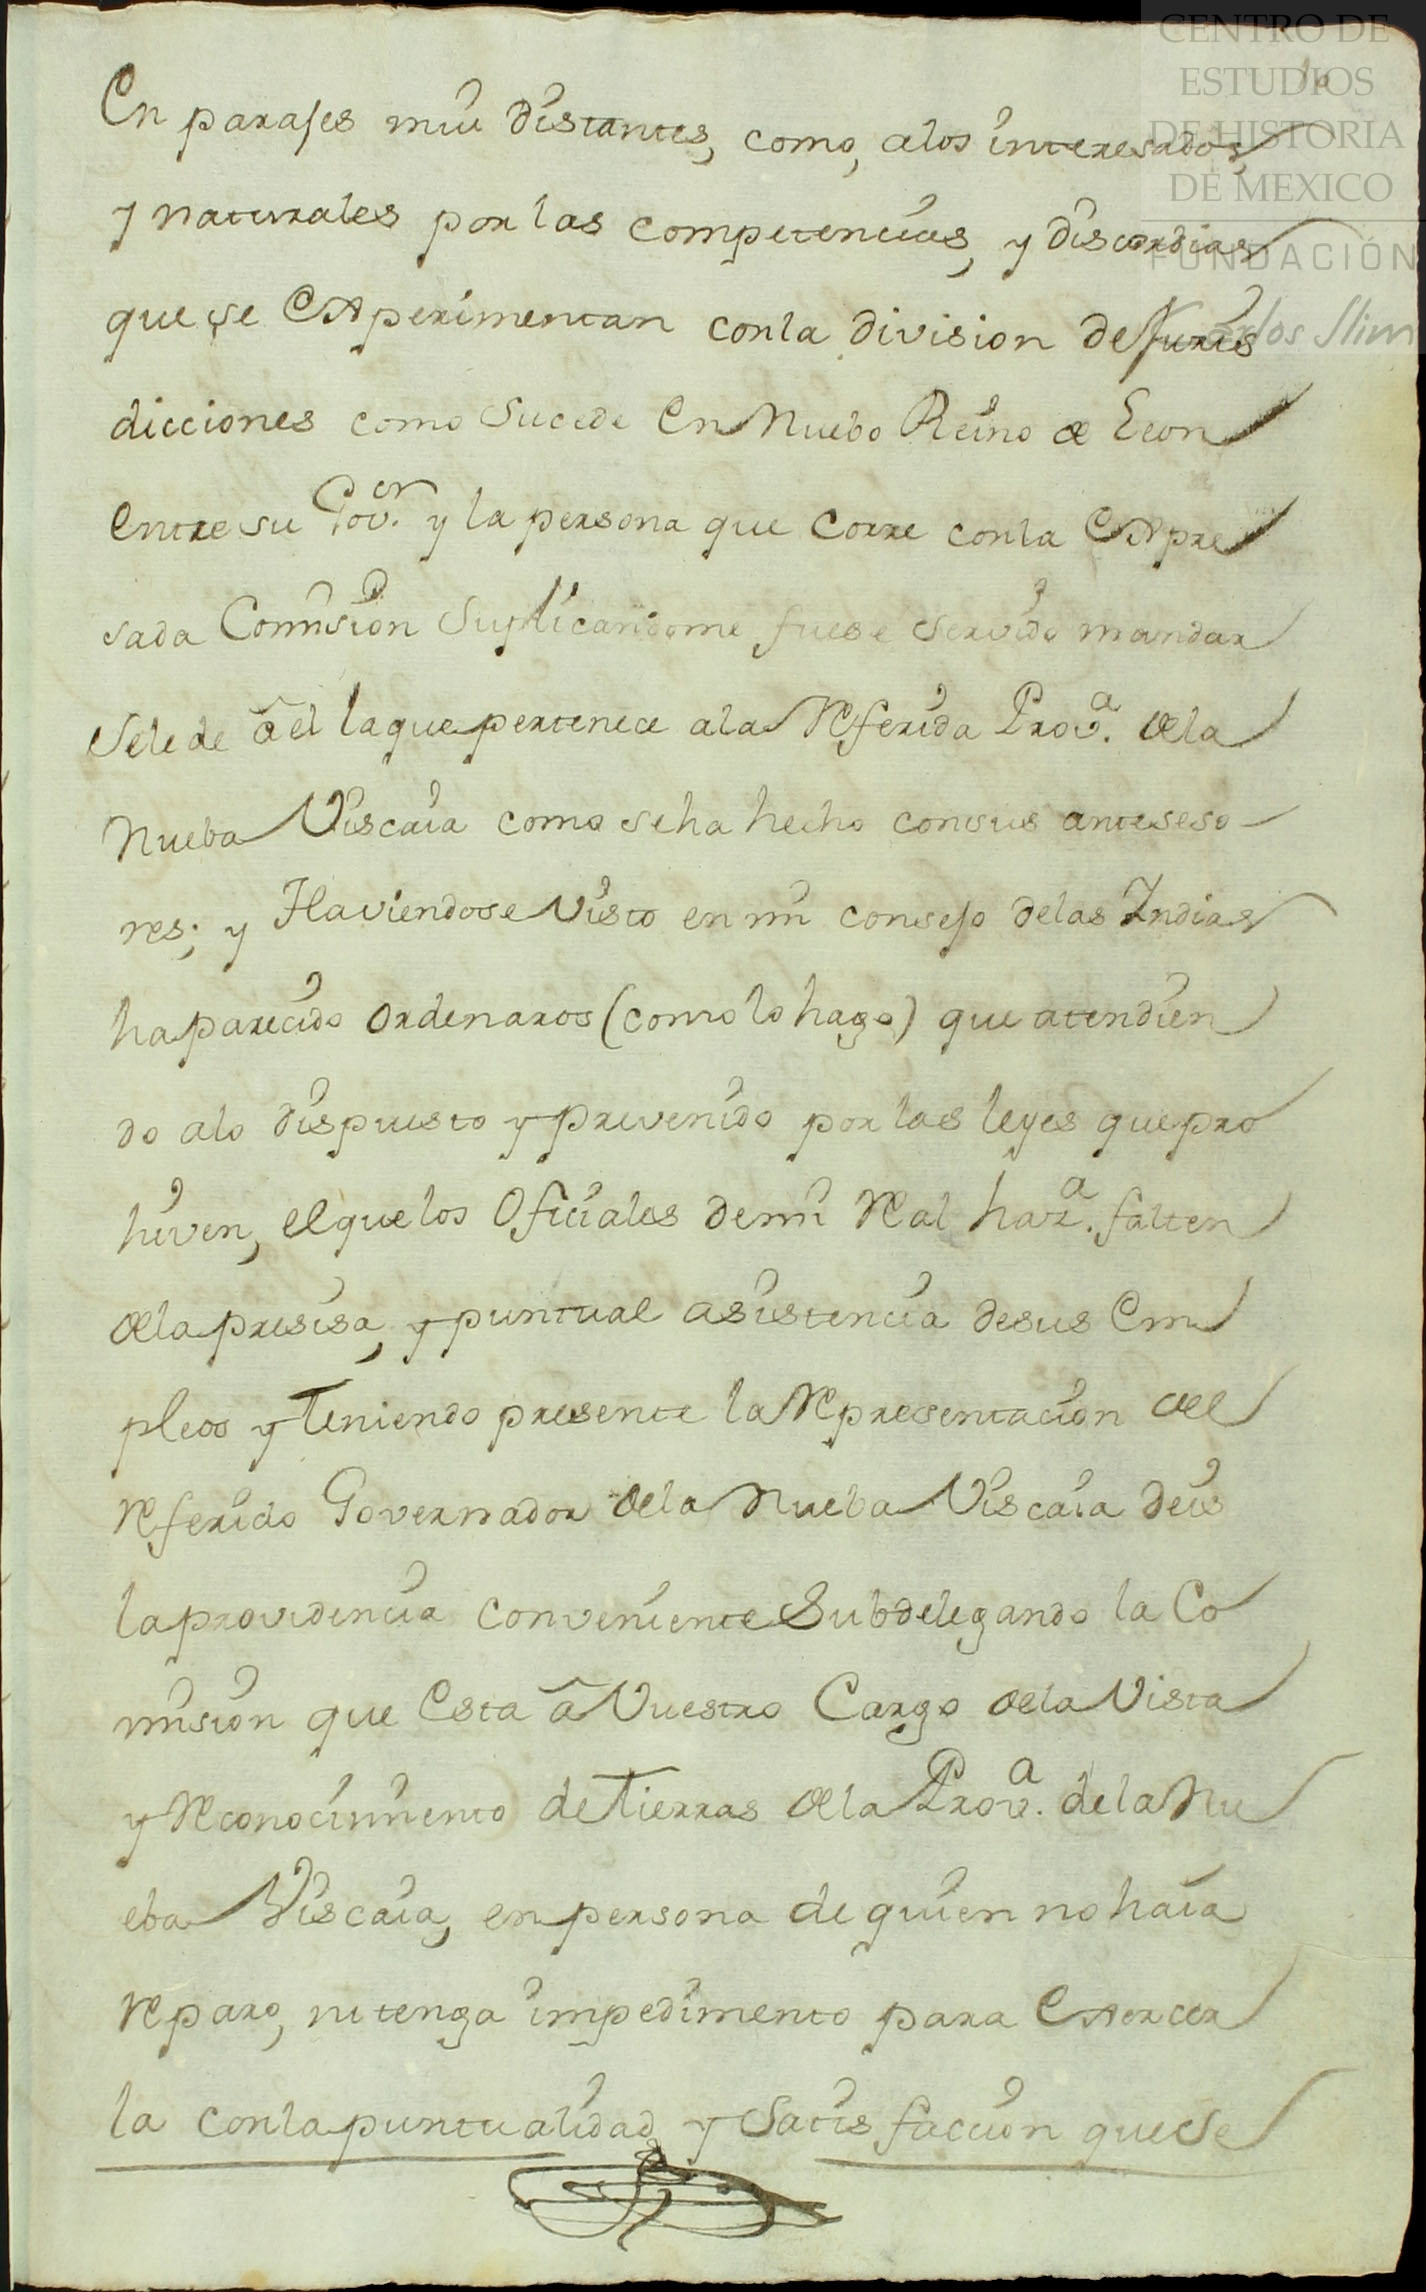 CENTRO DE
ESTUDIOS
DE HISTORIA
DE MEXICO
FUNDACIÓN
Carlos Slim
En parajes mui distantes, como, alos interesados,
y naturales por las competencias, y discordias
que se experimentan conla division de Juris
dicciones como sucede en Nuebo Reino de Leon
entre su Gov.or y la persona que corre conla expre
sada Comision suplicandome fuese servido mandar
sele de â el la que pertenece ala Referida Prov.a de la
Nueba Viscaia como se ha hecho con sus anteseso-
res; y Haviendose visto en mi consejo delas Indias
ha parecido ordenaros (como lo hago) que atendien
do alo dispuesto y prevenido por las leyes que pro
hiven, el que los Oficiales de mi Real haz.a falten
dela presisa, y puntual asistencia de sus Em
pleos y teniendo presente la Representacion del
Referido Governador dela Nueba Viscaia deis
la providencia conveniente Subdelegando la Co
mision que esta â vuestro Cargo dela Vista
y Reconocimiento de Tierras dela Prov.a de la Nu
eba Viscaia, en persona de quien no haia
Reparo, ni tenga impedimento para exercer
la conla puntualidad y satisfacion que se